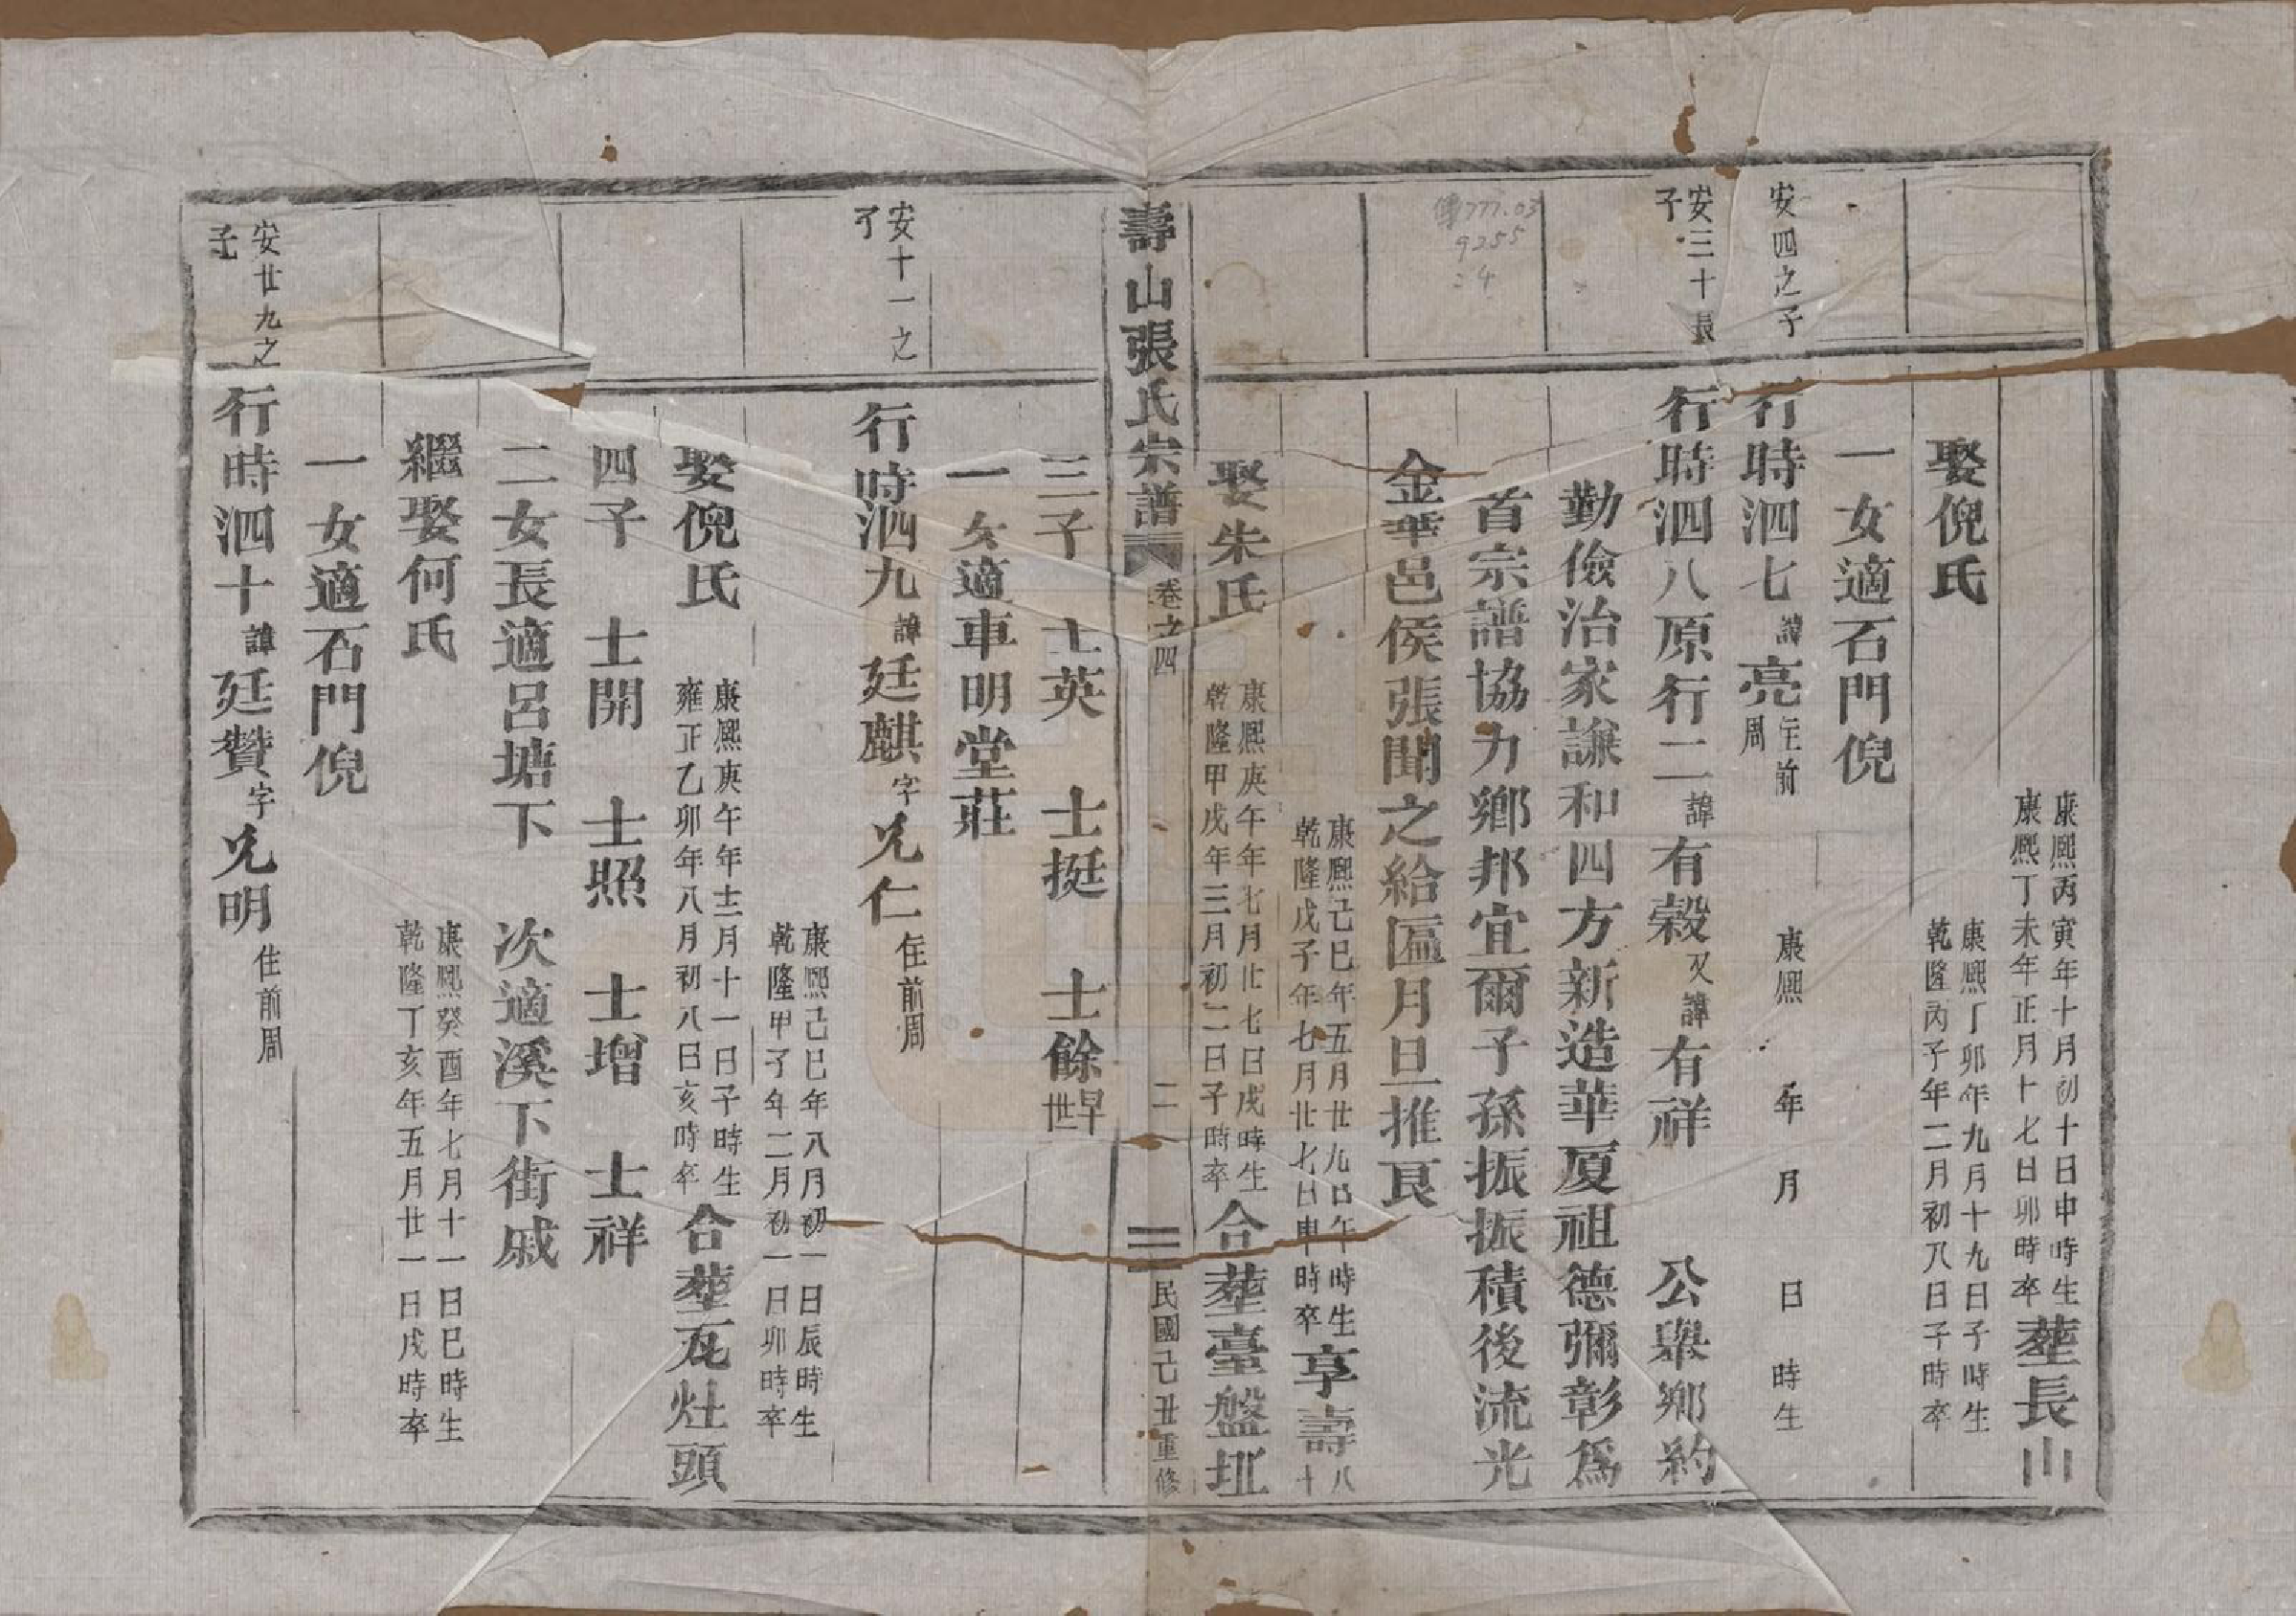 康熙丙寅年十月初十日申時生
康熙丁未年正月十七日卯時卒
塟長山
娶倪氏
康熙丁卯年九月十九日子時生
乾隆丙子年二月初八日子時卒
一女適石門倪
安四之子
行時泗七諱亮住前周
康熙 年 月 日 時生
安三十長子
行時泗八原行二諱有榖又諱有祥 公舉鄉約
勤儉治家謙和四方新造華厦祖德彌彰爲
首宗譜協力鄉邦宜爾子孫振振積後流光
金華邑侯張聞之給匾月旦推良
康熙己巳年五月廿九日午時生
乾隆戊子年七月廿七日申時卒
享壽八十
娶朱氏
康熙庚午年七月廿七日戌時生
乾隆甲戌年三月初二日子時卒
合塟臺盤坵
傳777.03
9255
:4
壽山張氏宗譜 卷之四 二 民國己丑重修
三子 士英 士挺 士餘早世
一女適車明堂莊
安十一之子
行時泗九諱廷麒字兄仁住前周
康熙己巳年八月初一日辰時生
乾隆甲子年二月初一日卯時卒
娶倪氏
康熙庚午年十二月十一日子時生
雍正乙卯年八月初八日亥時卒
合塟瓦灶頭
四子 士開 士照 士增 士祥
二女長適呂塘下 次適溪下街戚
繼娶何氏
康熙癸酉年七月十一日巳時生
乾隆丁亥年五月廿一日戌時卒
一女適石門倪
安廿九之子
行時泗十諱廷贊字兄明住前周